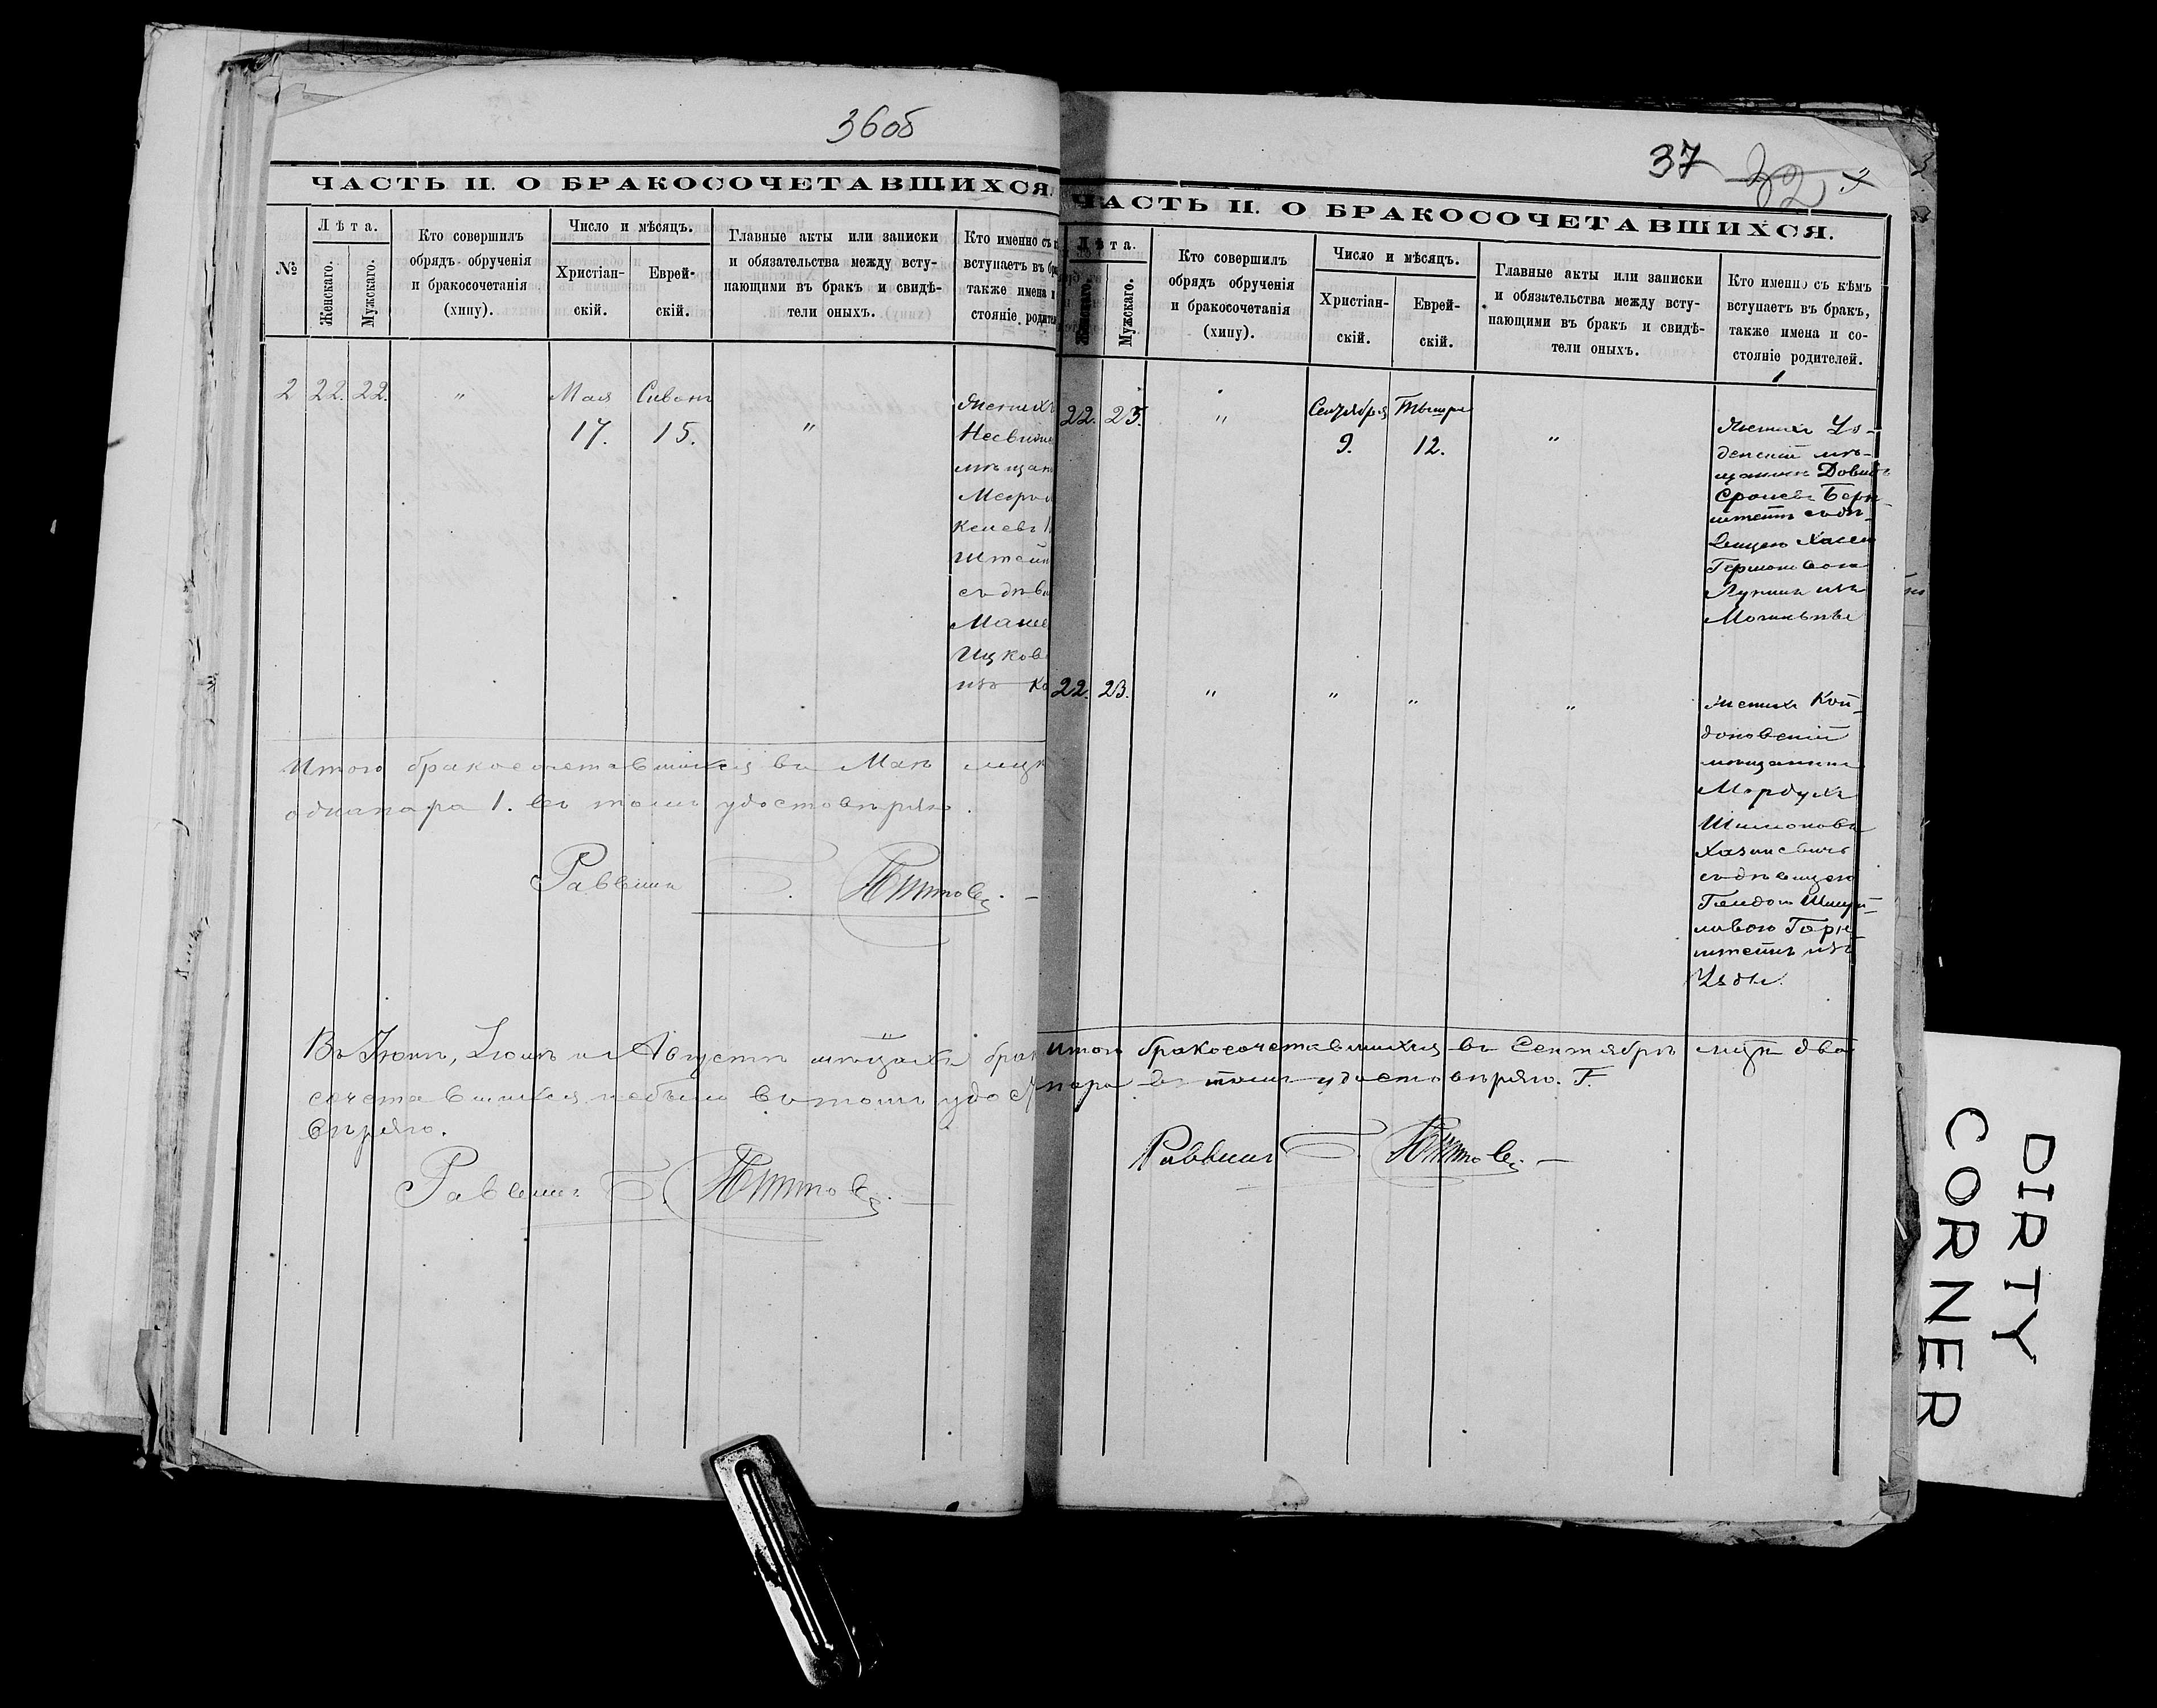 36об
ЧАСТЬ II. О БРАКОСОЧЕТАВШИХСЯ.
№
Лѣта.
Женскаго.
Мужскаго.
Кто совершилъ
обрядъ обрученія
и бракосочетанія
(хипу).
Число и мѣсяцъ.
Христіан-
скій.
Еврей-
скій.
Главные акты или записки
и обязательства между всту-
пающими въ бракъ и свидѣ-
тели оныхъ.
Кто именно съ к
вступаетъ въ бра
также имена и
стояніе родител
2 22. 22. " Мая Сиванъ
17. 15. "
Женихъ
Несвиж
мѣщан
Меер
келевъ
Штейн
съ дѣв
Маше
Ицков
изъ Ко
Итого бракосочетавшихся въ Маѣ мцѣ
одна пара 1. въ томъ удостовѣряю.
Раввинъ
Въ Іюнѣ, Іюлѣ и Августѣ мѣсяцахъ брак
сочетавшихся небыло въ томъ удост
вѣряю.
Раввинъ
37 32
ЧАСТЬ II. О БРАКОСОЧЕТАВШИХСЯ.
Лѣта.
Женскаго.
Мужскаго.
Кто совершилъ
обрядъ обрученія
и бракосочетанія
(хипу).
Число и мѣсяцъ.
Христіан-
скій.
Еврей-
скій.
Главные акты или записки
и обязательства между всту-
пающими въ бракъ и свидѣ-
тели оныхъ.
Кто именно съ кѣмъ
вступаетъ въ бракъ,
также имена и со-
стояніе родителей.
22. 25. " Сентября Тышре
9. 12. "
Женихъ Уз-
денскій мѣ-
щанинъ Довидъ
Сролевъ Берн-
штейнъ съ дѣ-
вицею Хасею
Лунинъ изъ
Могильны
22. 23. " " " "
Женихъ Кой-
доновскій
мѣщанинъ
Мордухъ
Шимоновъ
Хазановичъ
съ дѣвицею
Гендою Шмуй-
ловою Горн-
штейнъ изъ
Узды.
Итого бракосочетавшихся въ Сентябрѣ мцѣ два
пара въ томъ удостовѣряю.
Раввинъ
DIRTY
CORNER